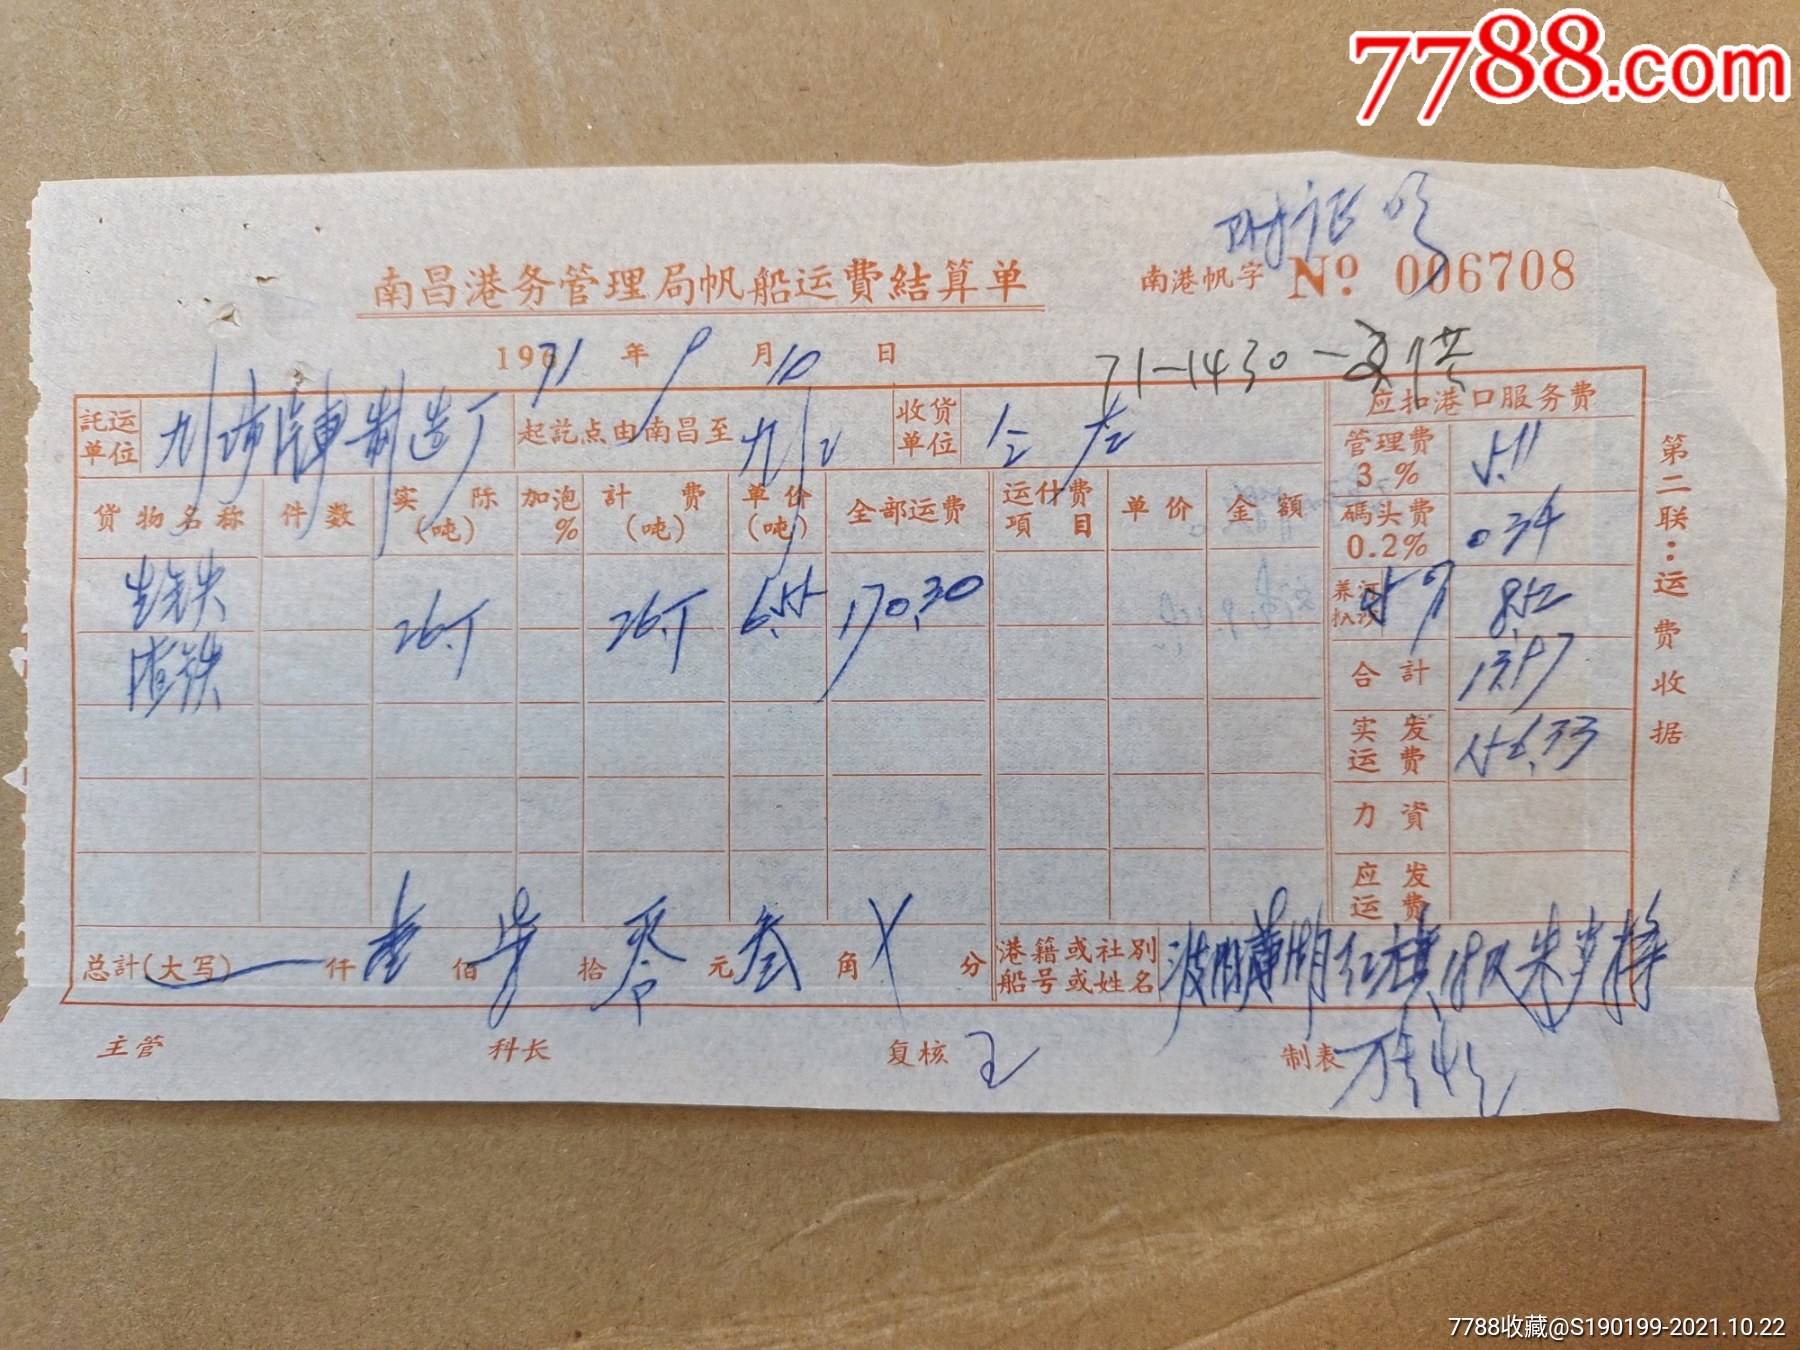 7788.com
附证明
南昌港务管理局帆船运费結算单
南港帆字 № 006708
1971年9月10日
71-1430-
託运单位 九江汽車制造厂 起訖点由南昌至九江 收货单位 仝左 应扣港口服务费
管理费 3% 5.11
貨物名称 件数 实际(吨) 加泡% 計费(吨) 单价(吨) 全部运费 运什费項目 单价 金額 碼头费 0.2% 0.34
生铁 26.T 26.T 6.55 170.30 5% 8.52
渣铁
合計 13.97
实发运费 156.33
力資
应发运费
总計(大写) 仟壹佰柒拾零元叁角 分 港籍或社別船号或姓名 波阳 红旗
主管 科长 复核 王 制表
第二联：运费收据
7788收藏@S190199-2021.10.22